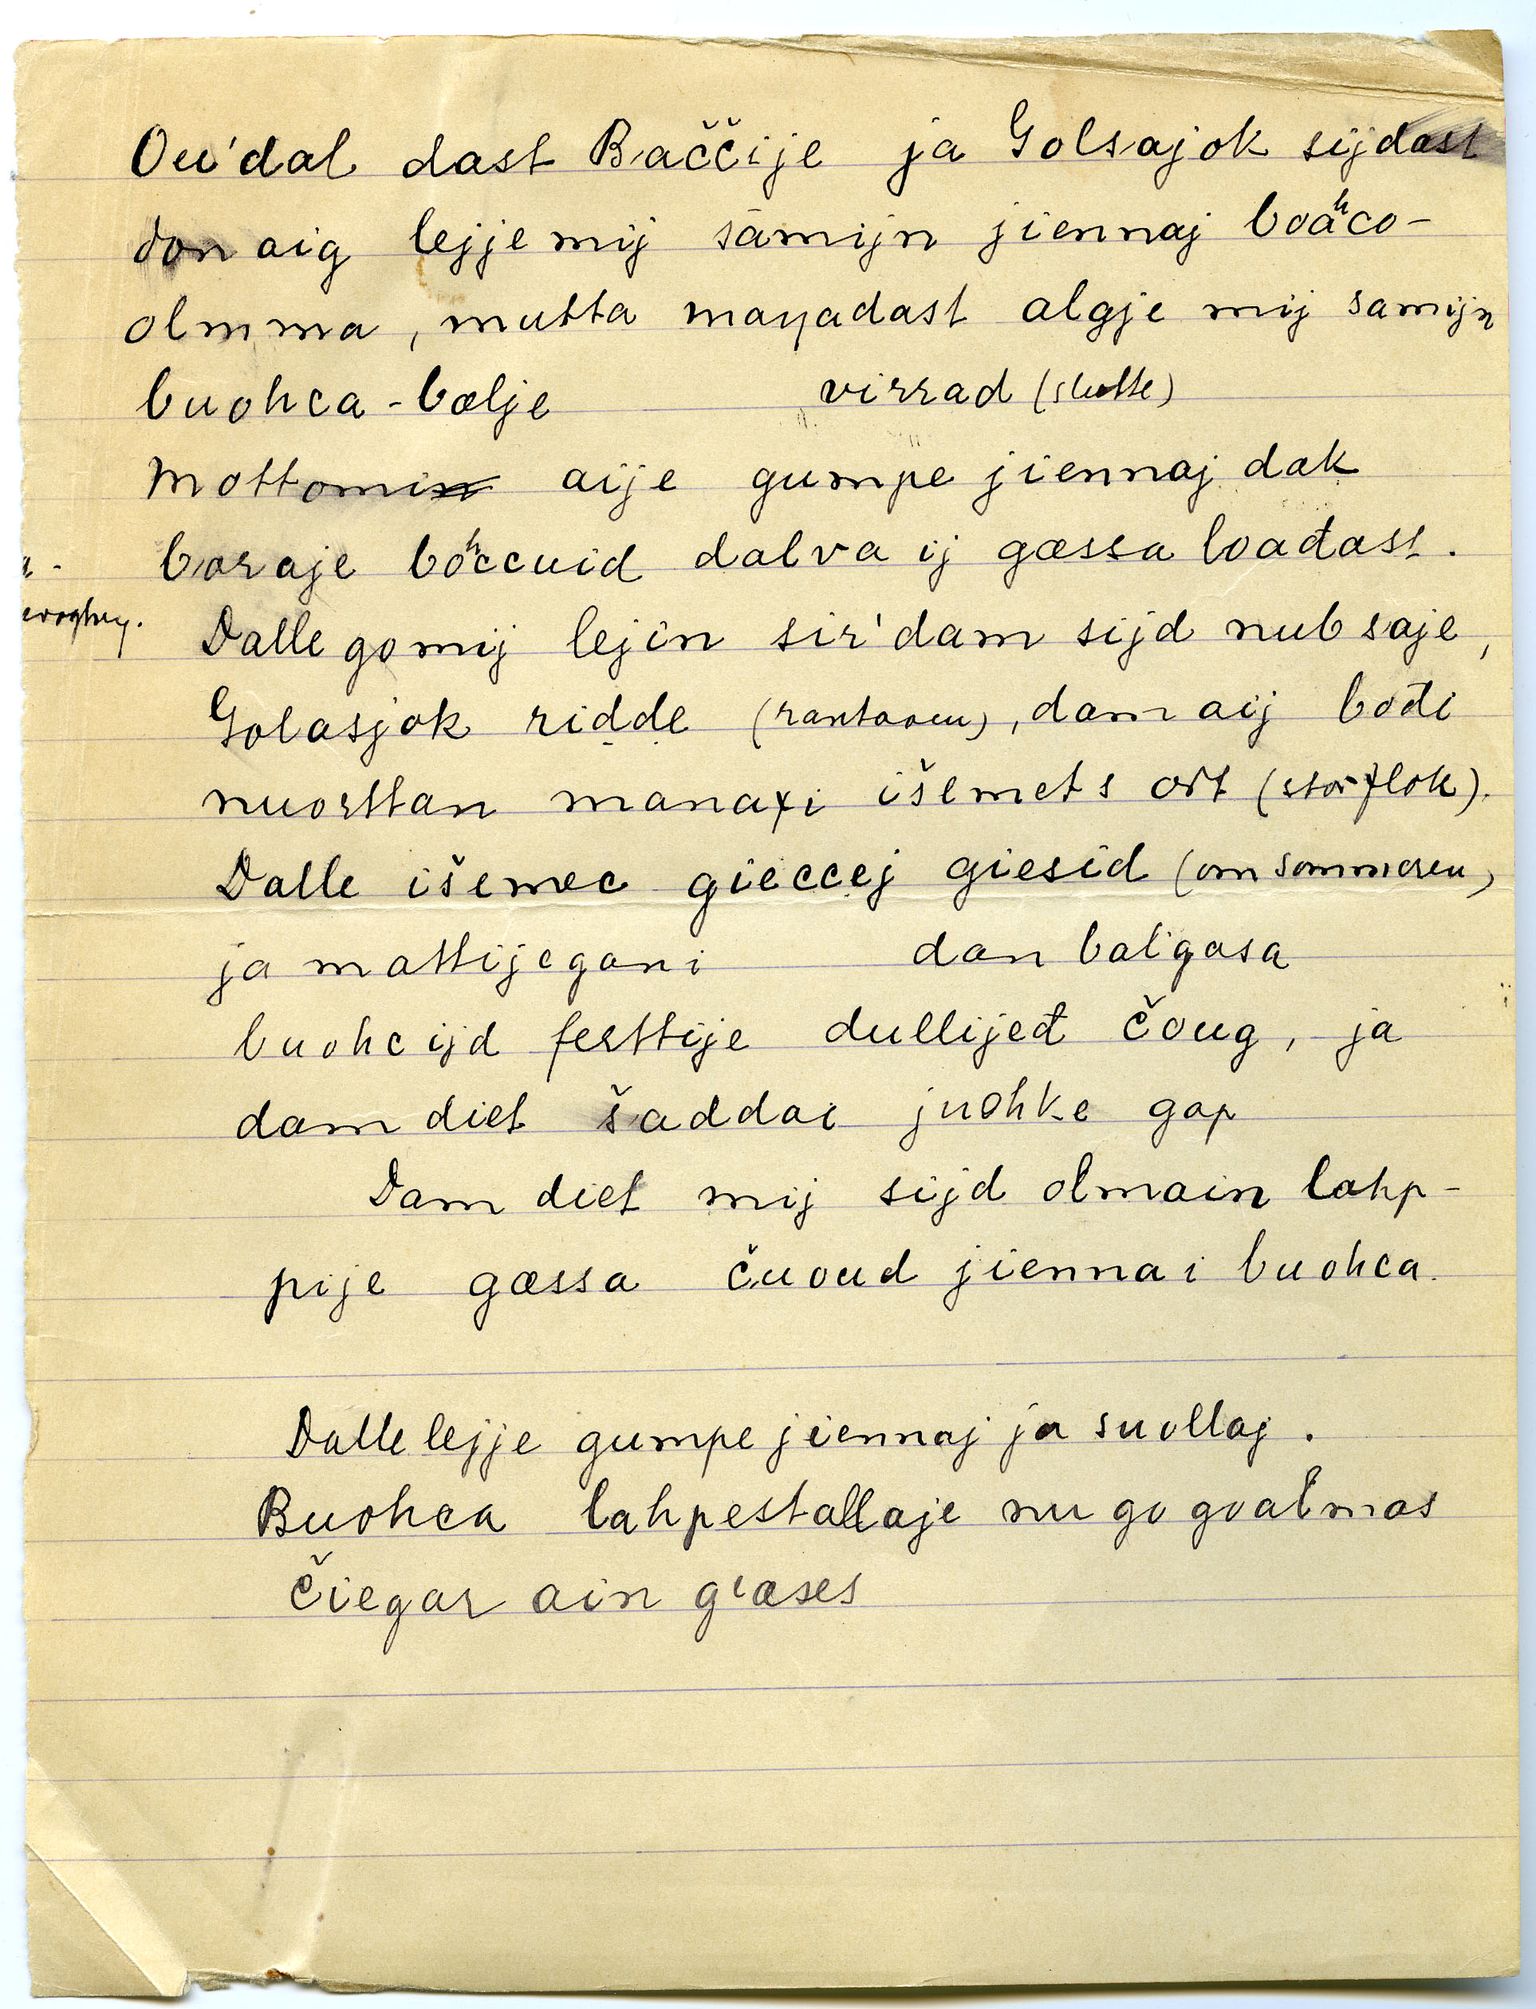 Ou'dal dast Baččije ja Golsajok sijdast
don aig lejje mij sämijn jiennaj boaʰco-
olmma, mutta maŋadast algje mij samijn
buohca-bælje virrad (slutte)
Mottomin aije gumpe jiennaj dak
boraje boʰccuid dalva ij gæssa loađast.
Dalle go mij lejin sir'dam sijd nub saje,
Golasjok ridde (rantaaen), dam aij bođi
nuorttan manaxi išemets ort (stor flok).
Dalle išemec gieccej giesid (om sommeren)
ja mattijegani dan baligasa
buohcijd ferttije dullijeđ čoug, ja
dam diet šaddai juohke gap
Dam diet mij sijd olmain lahp-
pije gæssa čuoud jiennai buohca.
Dalle lejje gumpe jiennaj ja suollaj.
Buohca lahpestallaje nu go goalmas
čiegar ain g'æses